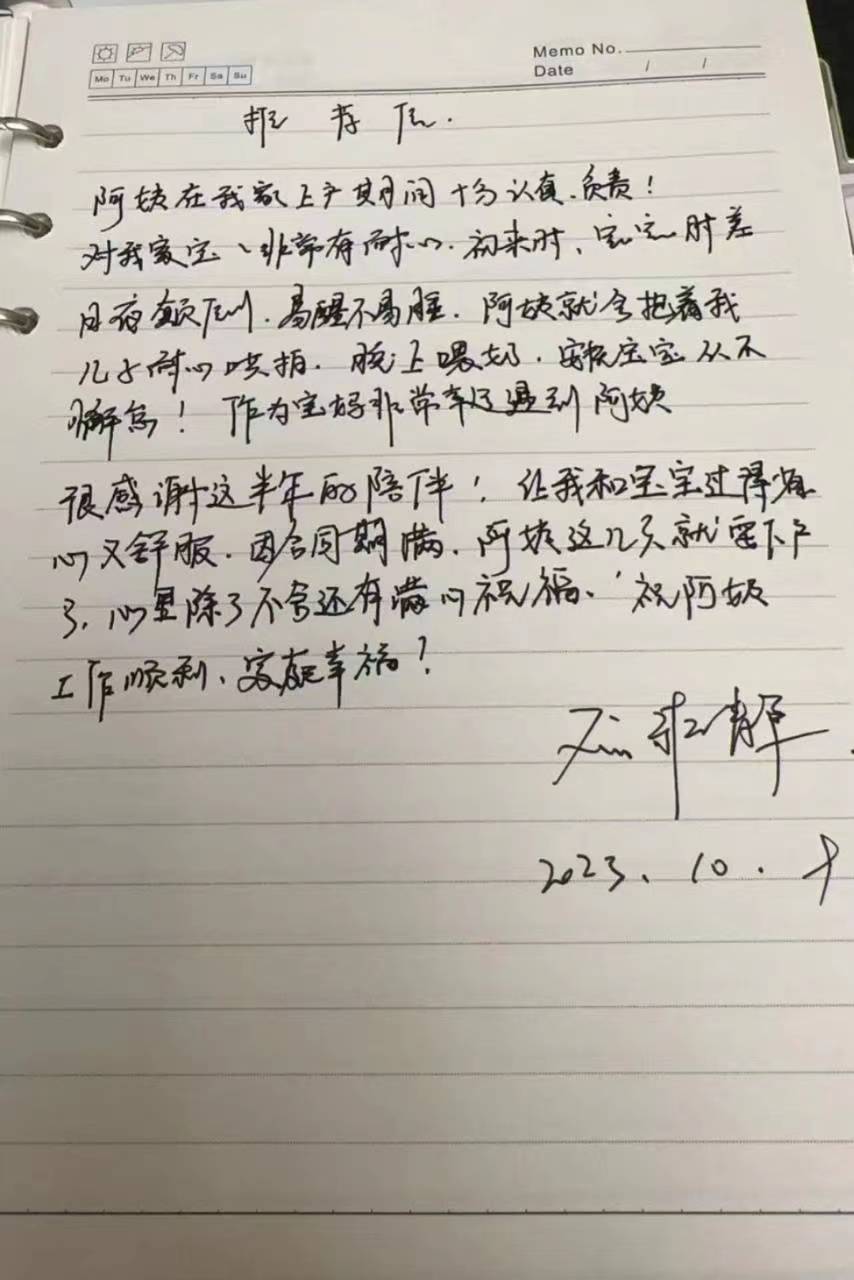 Memo No.
Mo Tu We Th Fr Sa Su
Date / /
推荐信.
阿姨在我家上户期间十分认真、负责！
对我家宝丶非常有耐心.初来时、宝宝时差
日夜颠倒.易醒不易睡.阿姨就会抱着我
儿子耐心哄拍.晚上喂奶.安抚宝宝从不
懈怠！作为宝妈非常幸运遇到阿姨
很感谢这半年的陪伴！让我和宝宝过得省
心又舒服.因合同期满.阿姨这几天就要下户
了,心里除了不舍还有满心祝福、祝阿姨
工作顺利、家庭幸福！
2023.10.